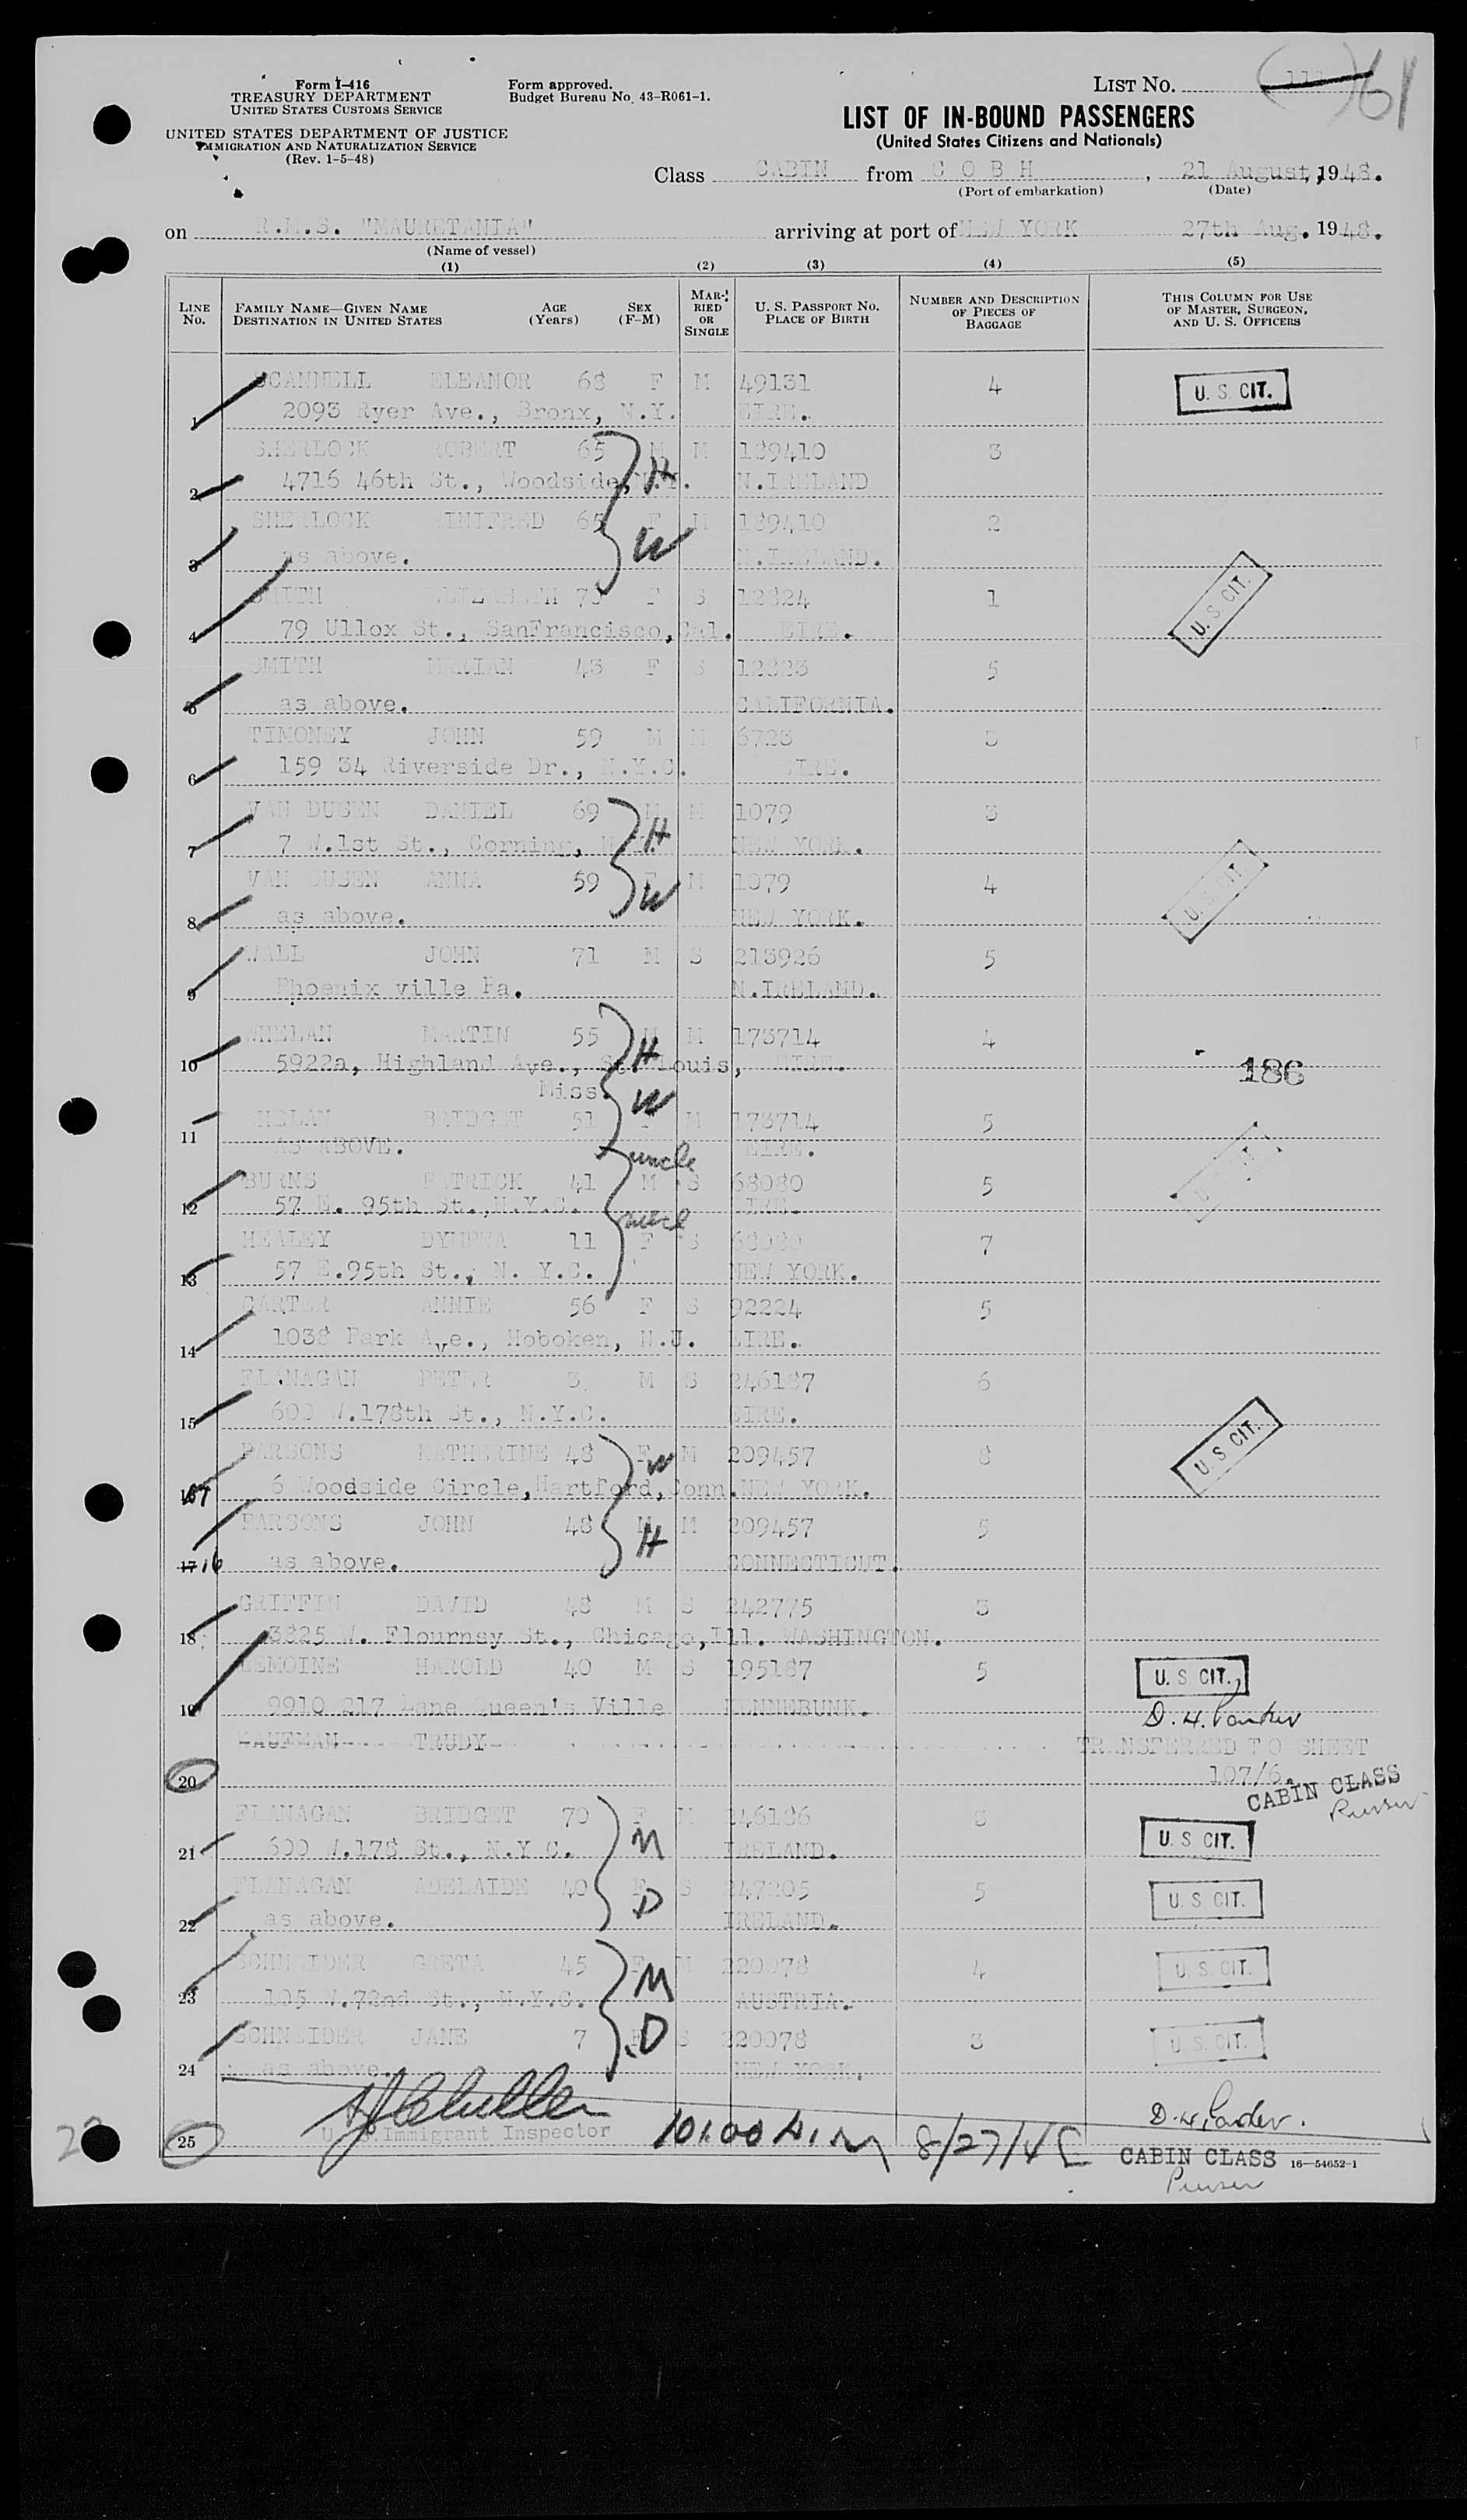 Form I-416
TREASURY DEPARTMENT
UNITED STATES CUSTOMS SERVICE
UNITED STATES DEPARTMENT OF JUSTICE
IMMIGRATION AND NATURALIZATION SERVICE
(Rev. 1-5-48)
Form approved.
Budget Bureau No. 43-R061-1.
LIST No. 61
LIST OF IN-BOUND PASSENGERS
(United States Citizens and Nationals)
Class CABIN from C O B H, 21 August, 1948.
(Port of embarkation) (Date)
on R.M.S. "MAURETANIA" arriving at port of NEW YORK 27th Aug. 1948.
(Name of vessel)
(1) (2) (3) (4) (5)
LINE No. FAMILY NAME—GIVEN NAME DESTINATION IN UNITED STATES AGE (Years) SEX (F-M) MARRIED OR SINGLE U. S. PASSPORT No. PLACE OF BIRTH NUMBER AND DESCRIPTION OF PIECES OF BAGGAGE THIS COLUMN FOR USE OF MASTER, SURGEON, AND U. S. OFFICERS
SCANNELL ELEANOR 68 F M 49131 4 U. S. CIT.
1 2093 Ryer Ave., Bronx, N.Y. EIRE.
SHERLOCK ROBERT 65 M M 189410 3
2 4716 46th St., Woodside, N.Y. N.IRELAND H
SHERLOCK WINIFRED 65 F M 189410 2
3 as above. N.IRELAND. W
SMITH ELIZABETH F S 12824 1 U. S. CIT.
4 79 Ullox St., SanFrancisco, Cal. EIRE.
SMITH MARIAN 43 F S 12823 5
5 as above. CALIFORNIA.
TIMONEY JOHN 59 M M 6723 3
6 159 34 Riverside Dr., N.Y.C. EIRE.
VAN DUSEN DANIEL 69 M M 1079 3
7 7 W.1st St., Corning, N.Y. NEW YORK. H
VAN DUSEN ANNA 59 F M 1079 4 U. S. CIT.
8 as above. NEW YORK. W
WALL JOHN 71 M S 213926 5
9 Phoenix ville Pa. N.IRELAND.
WHELAN MARTIN 55 M M 173714 4
10 5922a, Highland Ave., St. Louis, EIRE. H 186
Miss. W
WHELAN BRIDGET 51 F M 173714 5
11 AS ABOVE. EIRE.
uncle
BURNS PATRICK 41 M S 68080 5
12 57 E. 95th St., N.Y.C. EIRE.
niece
HEALEY DYMPNA 11 F S 68080 7
13 57 E.95th St., N. Y.C. NEW YORK.
CARTER ANNIE 56 F S 92224 5
14 1038 Park Ave., Hoboken, N.J. EIRE.
FLANAGAN PETER M S 246187 6
15 600 W.178th St., N.Y.C. EIRE.
PARSONS KATHERINE 48 F M 209457 8 U. S. CIT.
17 6 Woodside Circle, Hartford, Conn. NEW YORK. W
PARSONS JOHN 48 M M 209457 5
17 16 as above. CONNECTICUT. H
GRIFFIN DAVID 48 M S 242775 3
18 3825 W. Flournsy St., Chicago, Ill. WASHINGTON.
LEMOINE HAROLD 40 M S 195187 5 U. S. CIT.
19 9910 217 Lane Queen's Ville KENNEBUNK.
KAUFMAN TRUDY TRANSFERRED TO SHEET
20 107/6.
CABIN CLASS
Purser
FLANAGAN BRIDGET 70 F M 246186 3 U. S. CIT.
21 600 W.178 St., N.Y C. IRELAND. M
FLANAGAN ADELAIDE 40 F S 247205 5 U. S. CIT.
22 as above. IRELAND. D
SCHNEIDER GRETA 45 F M 220078 4 U. S. CIT.
23 105 W.72nd St., N.Y.C. AUSTRIA. M
SCHNEIDER JANE 7 F S 220078 3 U. S. CIT.
24 as above. NEW YORK. D
25 U. S. Immigrant Inspector 10:00 A.M 8/27/48
CABIN CLASS 16—54652-1
Purser